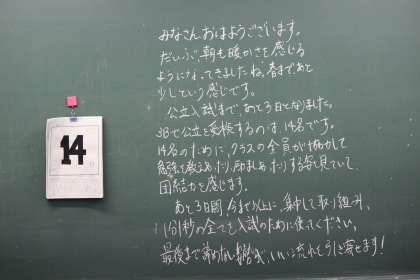 みなさん、おはようございます。
だいぶ、朝も暖かさを感じる
ようになってきましたね。春まであと
少しという感じです。
公立入試まで、あと3日となりました。
3Bで公立を受検するのは14名です。
14名のために、クラスの全員が協力して
勉強を教えあったり、励ましあったりする姿を見ていて、
団結力を感じます。
あと3日間、今まで以上に、集中して取り組み、
1分1秒の全てを入試のために使ってください。
最後まで諦めない、いい流れを引き寄せます!
14